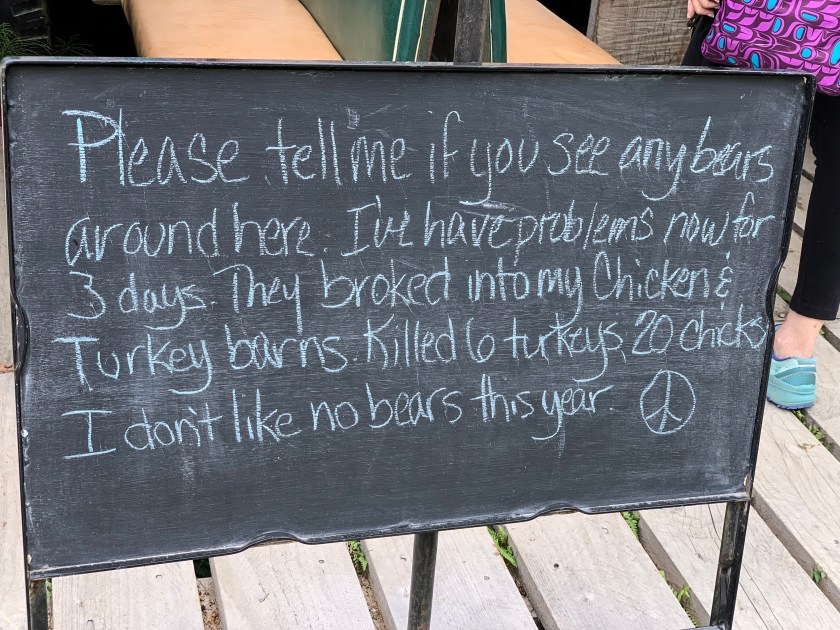 Please tell me if you see any bears
around here. I've have problems now for
3 days. They broked into my Chicken &
Turkey barns. Killed 6 turkeys, 20 chicks
I don't like no bears this year. ☮